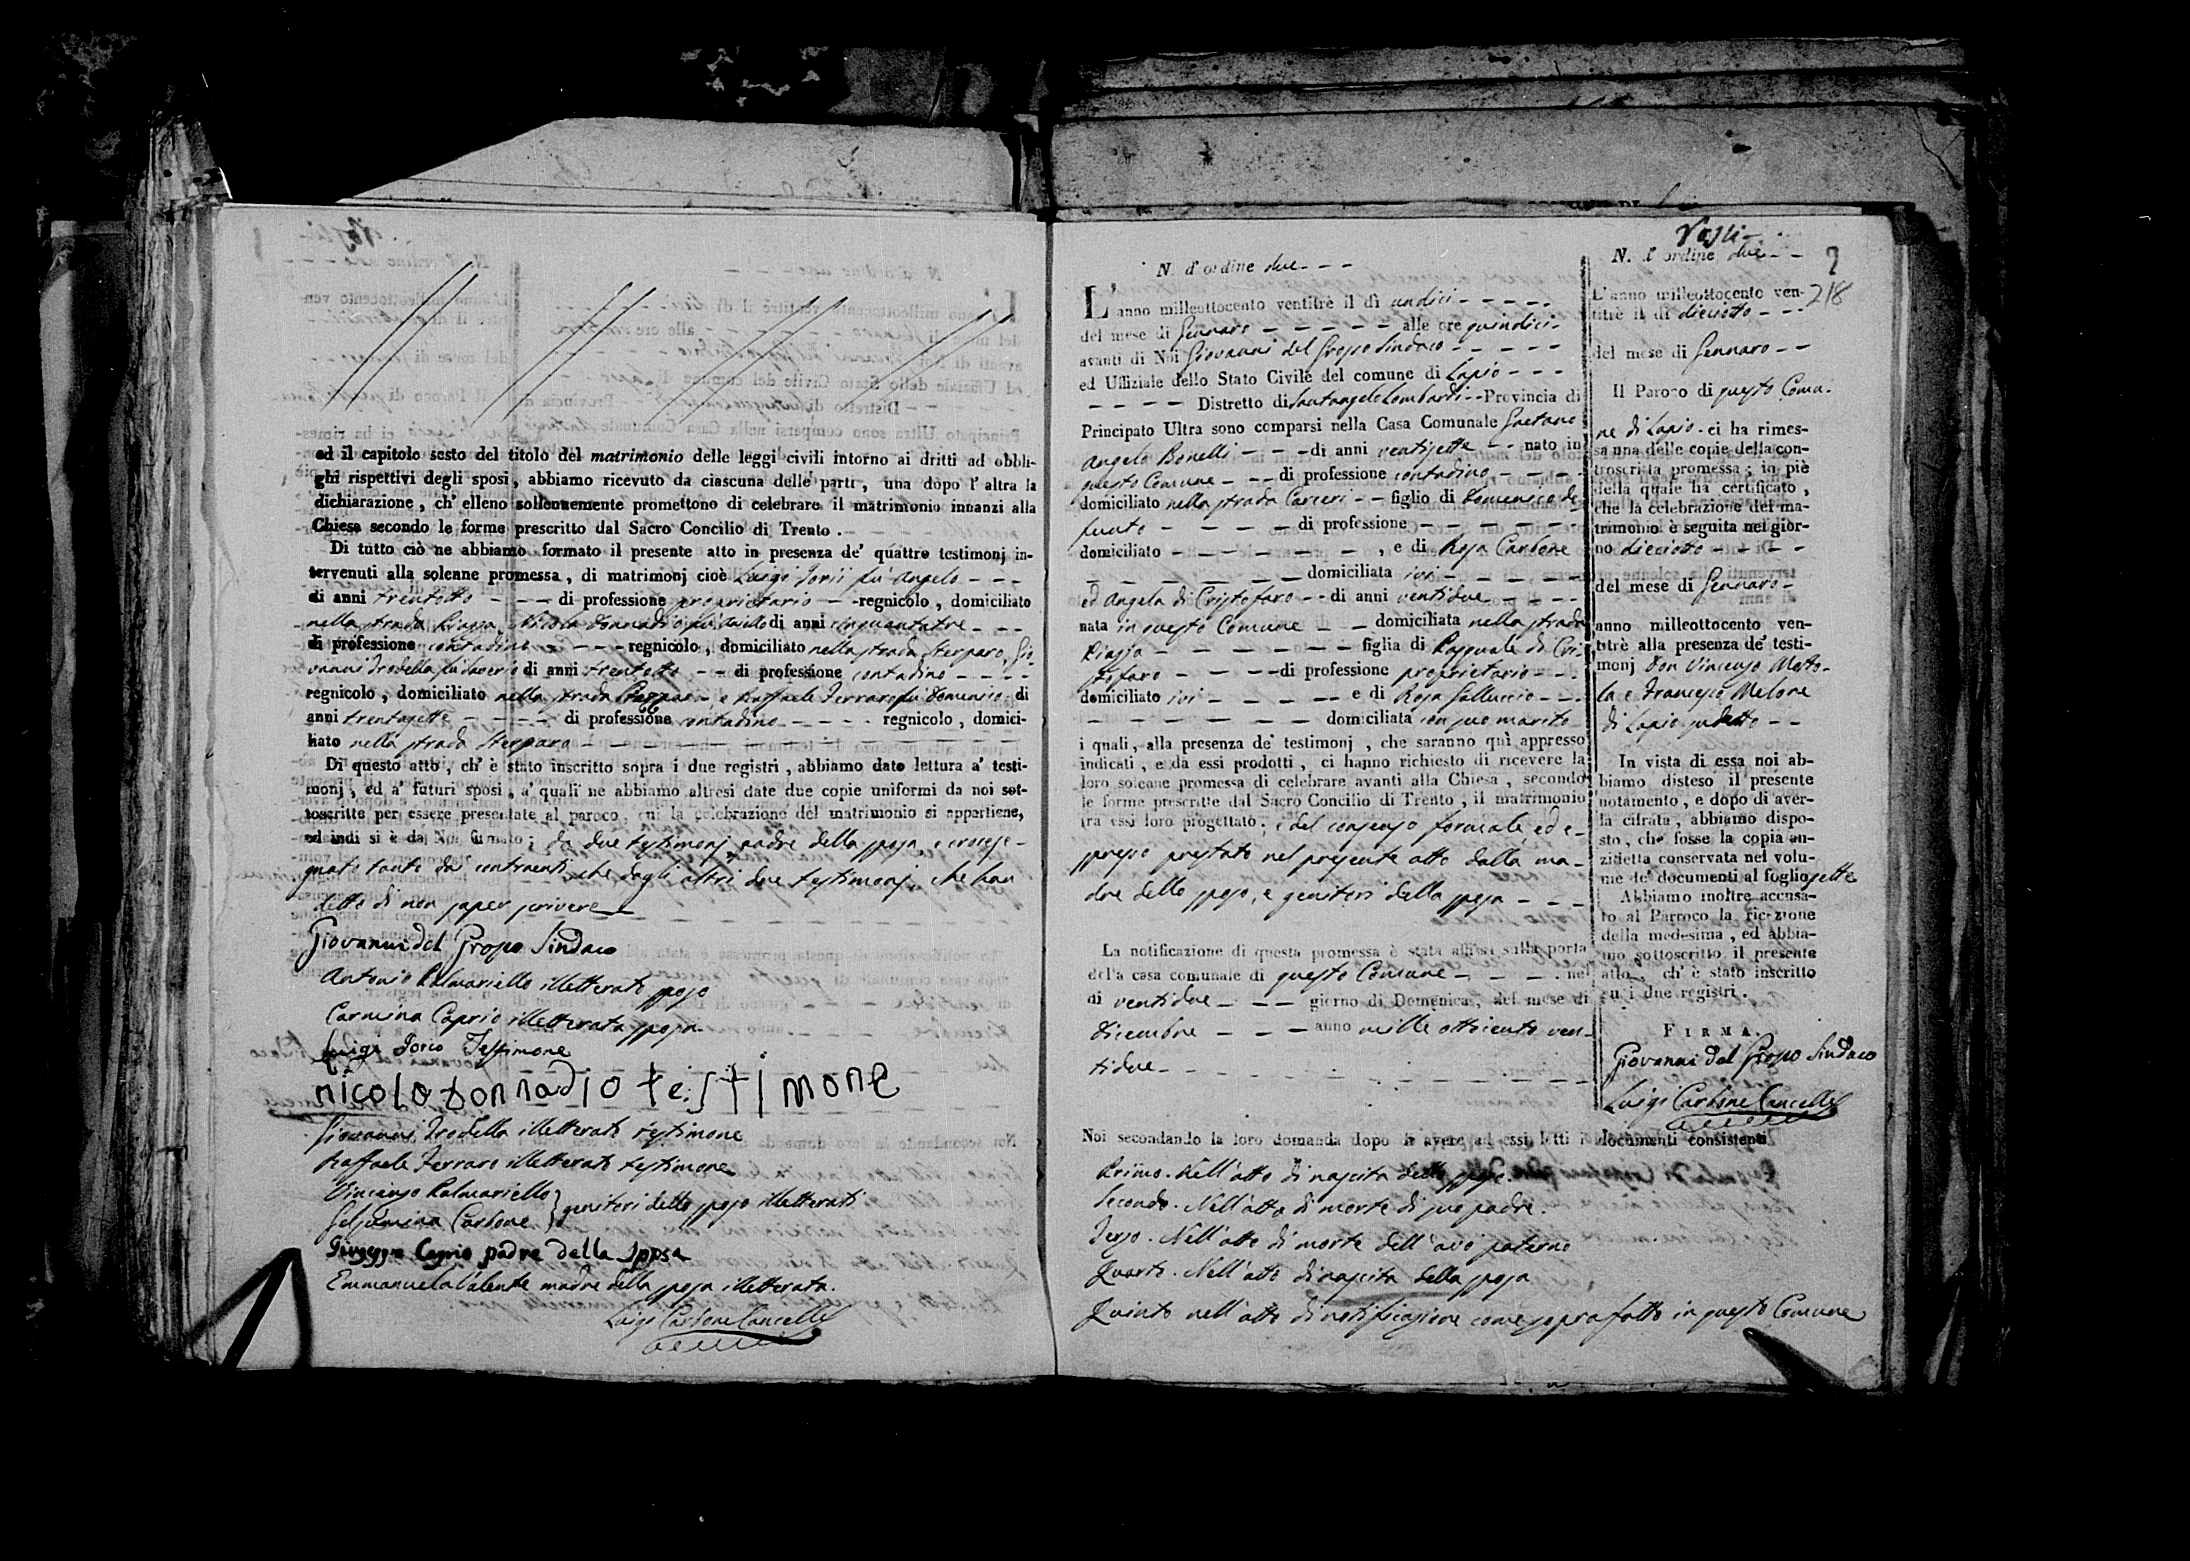 ed il capitolo sesto del titolo del matrimonio delle leggi civili intorno ai dritti ad obbli-
ghi rispettivi degli sposi, abbiamo ricevuto da ciascuna delle parti, una dopo l'altra la
dichiarazione, ch' elleno sollennemente promettono di celebrare il matrimonio innanzi alla
Chiesa secondo le forme prescritto dal Sacro Concilio di Trento.
Di tutto ciò ne abbiamo formato il presente atto in presenza de' quattro testimonj in-
tervenuti alla solenne promessa, di matrimonj cioè Luigi Iorii fu Angelo - - -
di anni trentotto - - - di professione proprietario - - regnicolo, domiciliato
nella strada Piazza, Nicola Donnadio fu di anni cinquantatre - - -
di professione contadino - - - regnicolo, domiciliato nella strada Sterparo, Gio-
vanni Trodella fu Saverio di anni trentotto - - di professione contadino - - - -
regnicolo, domiciliato nella strada e Raffaele Ferraro fu Domenico di
anni trentasette - - - - di professione contadino - - - - regnicolo, domici-
liato nella strada Sterparo - - - - - -
Di questo atto, ch' è stato inscritto sopra i due registri, abbiamo dato lettura a' testi-
monj, ed a' futuri sposi, a' quali ne abbiamo altresi date due copie uniformi da noi sot-
toscritte per essere presentate al paroco, cui la celebrazione del matrimonio si appartiene,
ed indi si è da Noi firmato; da due testimonj, padre della sposa, e crocese-
gnato tanto da' contraenti, che dagli altri due testimonj che han
detto di non saper scrivere
Giovanni del Grosso Sindaco
Antonio Palmariello illetterato sposo
Carmina Caprio illetterata sposa
Luigi Iorio Testimone
nicola donnadio testimone
Giovanni Trodella illetterato testimone
Raffaele Ferraro illetterato testimone
Vincenzo Palmariello
Gelsomina Carbone } genitori dello sposo illetterati
Giuseppe Caprio padre della Sposa
Emmanuela Valente madre della sposa illetterata.
Luigi Carbone Cancelle
N. d'ordine due - - -
L'anno milleottocento ventitrè il dì undici - - - - -
del mese di Gennaro - - - - - alle ore quindici -
avanti di Noi Giovanni del Grosso Sindaco - - - - -
ed Uffiziale dello Stato Civile del comune di Lapio - - -
- - - - Distretto di Santangelo Lombardi - - Provincia di
Principato Ultra sono comparsi nella Casa Comunale Gaetano
Angelo Bonelli - - - di anni ventisette - - nato in
questo Comune - - - di professione contadino - - - -
domiciliato nella strada Carceri - - figlio di Domenico de-
funto - - - - - di professione - - - - - -
domiciliato - - - - - - -, e di Rosa Carbone
- - - - - - - domiciliata ivi - - - - -
ed Angela di Cristofaro - - di anni ventidue - - - -
nata in questo Comune - - domiciliata nella strada
Piazza - - - - - - - figlia di Pasquale di Cri-
stofaro - - - - di professione proprietario - - -
domiciliato ivi - - - - - - e di Rosa Galluccio - - -
- - - - - - - domiciliata con suo marito
i quali, alla presenza de' testimonj, che saranno quì appresso
indicati, e da essi prodotti, ci hanno richiesto di ricevere la
loro solenne promessa di celebrare avanti alla Chiesa, secondo
le forme prescritte dal Sacro Concilio di Trento, il matrimonio
tra essi loro progettato; e del consenso formale ed e-
spresso prestato nel presente atto dalla ma-
dre dello sposo, e genitori della sposa - - -
La notificazione di questa promessa è stata affissa sulla porta
della casa comunale di questo Comune - - - - nel
di ventidue - - - giorno di Domenica, del mese di
Dicembre - - - anno mille ottocento ven-
tidue - - - - - - -
Noi secondando la loro domanda dopo di avere ad essi letti i documenti consistenti
Primo. Nell'atto di nascita dello sposo.
Secondo. Nell'atto di morte di suo padre.
Terzo. Nell'atto di morte dell'avo paterno
Quarto. Nell'atto di nascita della sposa
Quinto nell'atto di notificazione come sopra fatto in questo Comune
N. d'ordine due - -
2
218
L'anno milleottocento ven-
titrè il di dieciotto - - -
del mese di Gennaro - -
Il Paroco di questo Comu-
ne di Lapio - ci ha rimes-
sa una delle copie della con-
troscritta promessa; in piè
della quale ha certificato,
che la celebrazione del ma-
trimonio è seguita nel gior-
no dieciotto - - - -
del mese di Gennaro -
anno milleottocento ven-
titrè alla presenza de' testi-
monj Don Vincenzo Motto-
la e Francesco Melone
di Lapio sudetto - -
In vista di essa noi ab-
biamo disteso il presente
notamento, e dopo di aver-
la cifrata, abbiamo dispo-
sto, che fosse la copia an-
zidetta conservata nel volu-
me de' documenti al foglio sette
Abbiamo inoltre accusa-
to al Parroco la ricezione
della medesima, ed abbia-
mo sottoscritto il presente
atto, ch' è stato inscritto
su i due registri.
FIRMA.
Giovanni del Grosso Sindaco
Luigi Carbone Cancelle